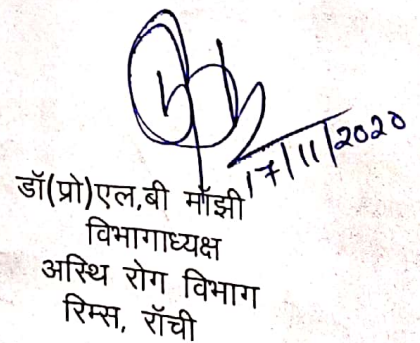 17/11/2020
डॉ(प्रो)एल,बी मॉझी
विभागाध्यक्ष
अस्थि रोग विभाग
रिम्स, रॉची